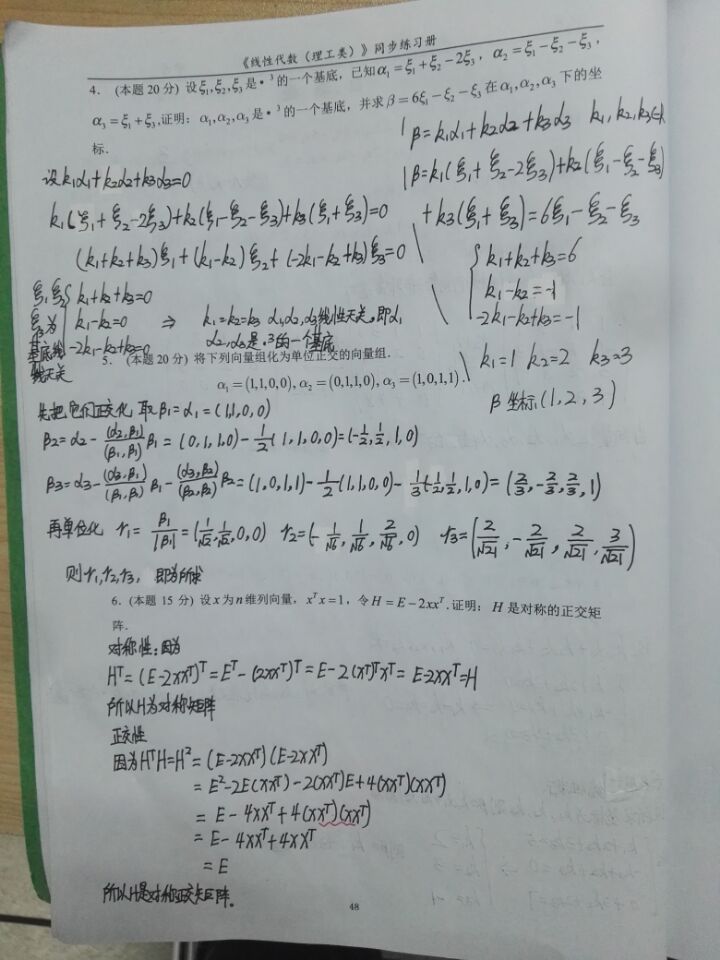 《线性代数(理工类)》同步练习册
4. (本题20分) 设ξ₁,ξ₂,ξ₃是•³的一个基底,已知α₁=ξ₁+ξ₂−2ξ₃, α₂=ξ₁−ξ₂−ξ₃,
α₃=ξ₁+ξ₃,证明: α₁,α₂,α₃是•³的一个基底,并求β=6ξ₁−ξ₂−ξ₃在α₁,α₂,α₃下的坐
标.
设k₁α₁+k₂α₂+k₃α₃=0
k₁(ξ₁+ξ₂-2ξ₃)+k₂(ξ₁-ξ₂-ξ₃)+k₃(ξ₁+ξ₃)=0
(k₁+k₂+k₃)ξ₁+(k₁-k₂)ξ₂+(-2k₁-k₂+k₃)ξ₃=0
ξ₁ξ₂
ξ₃为
基底线
线无关
k₁+k₂+k₃=0
k₁-k₂=0
-2k₁-k₂+k₃=0
⇒ k₁=k₂=k₃ α₁α₂,α₃线性无关,即α₁
α₂,α₃是•³的一个基底
β=k₁α₁+k₂α₂+k₃α₃ k₁,k₂,k₃
β=k₁(ξ₁+ξ₂-2ξ₃)+k₂(ξ₁-ξ₂-ξ₃)
+k₃(ξ₁+ξ₃)=6ξ₁-ξ₂-ξ₃
k₁+k₂+k₃=6
k₁-k₂=-1
-2k₁-k₂+k₃=-1
k₁=1 k₂=2 k₃=3
β坐标(1,2,3)
5. (本题20分) 将下列向量组化为单位正交的向量组.
α₁=(1,1,0,0), α₂=(0,1,1,0), α₃=(1,0,1,1).
先把它们正交化 取β₁=α₁=(1,1,0,0)
β₂=α₂-(α₂,β₁)/(β₁,β₁)β₁=(0,1,1,0)-1/2(1,1,0,0)=(-1/2,1/2,1,0)
β₃=α₃-(α₃,β₁)/(β₁,β₁)β₁-(α₃,β₂)/(β₂,β₂)β₂=(1,0,1,1)-1/2(1,1,0,0)-1/3(-1/2,1/2,1,0)=(2/3,-2/3,2/3,1)
再单位化 r₁=β₁/|β₁|=(1/√2,1/√2,0,0) r₂=(-1/√6,1/√6,2/√6,0) r₃=(2/√21,-2/√21,2/√21,3/√21)
则r₁,r₂,r₃, 即为所求
6. (本题15分) 设x为n维列向量, xᵀx=1,令H=E−2xxᵀ.证明: H是对称的正交矩
阵.
对称性:因为
Hᵀ=(E-2XXᵀ)ᵀ=Eᵀ-(2XXᵀ)ᵀ=E-2(Xᵀ)ᵀXᵀ=E-2XXᵀ=H
所以H为对称矩阵
正交性
因为HᵀH=H²=(E-2XXᵀ)(E-2XXᵀ)
=E²-2E(XXᵀ)-2(XXᵀ)E+4(XXᵀ)(XXᵀ)
=E-4XXᵀ+4(XXᵀ)(XXᵀ)
=E-4XXᵀ+4XXᵀ
=E
所以H是对称正交矩阵。
48